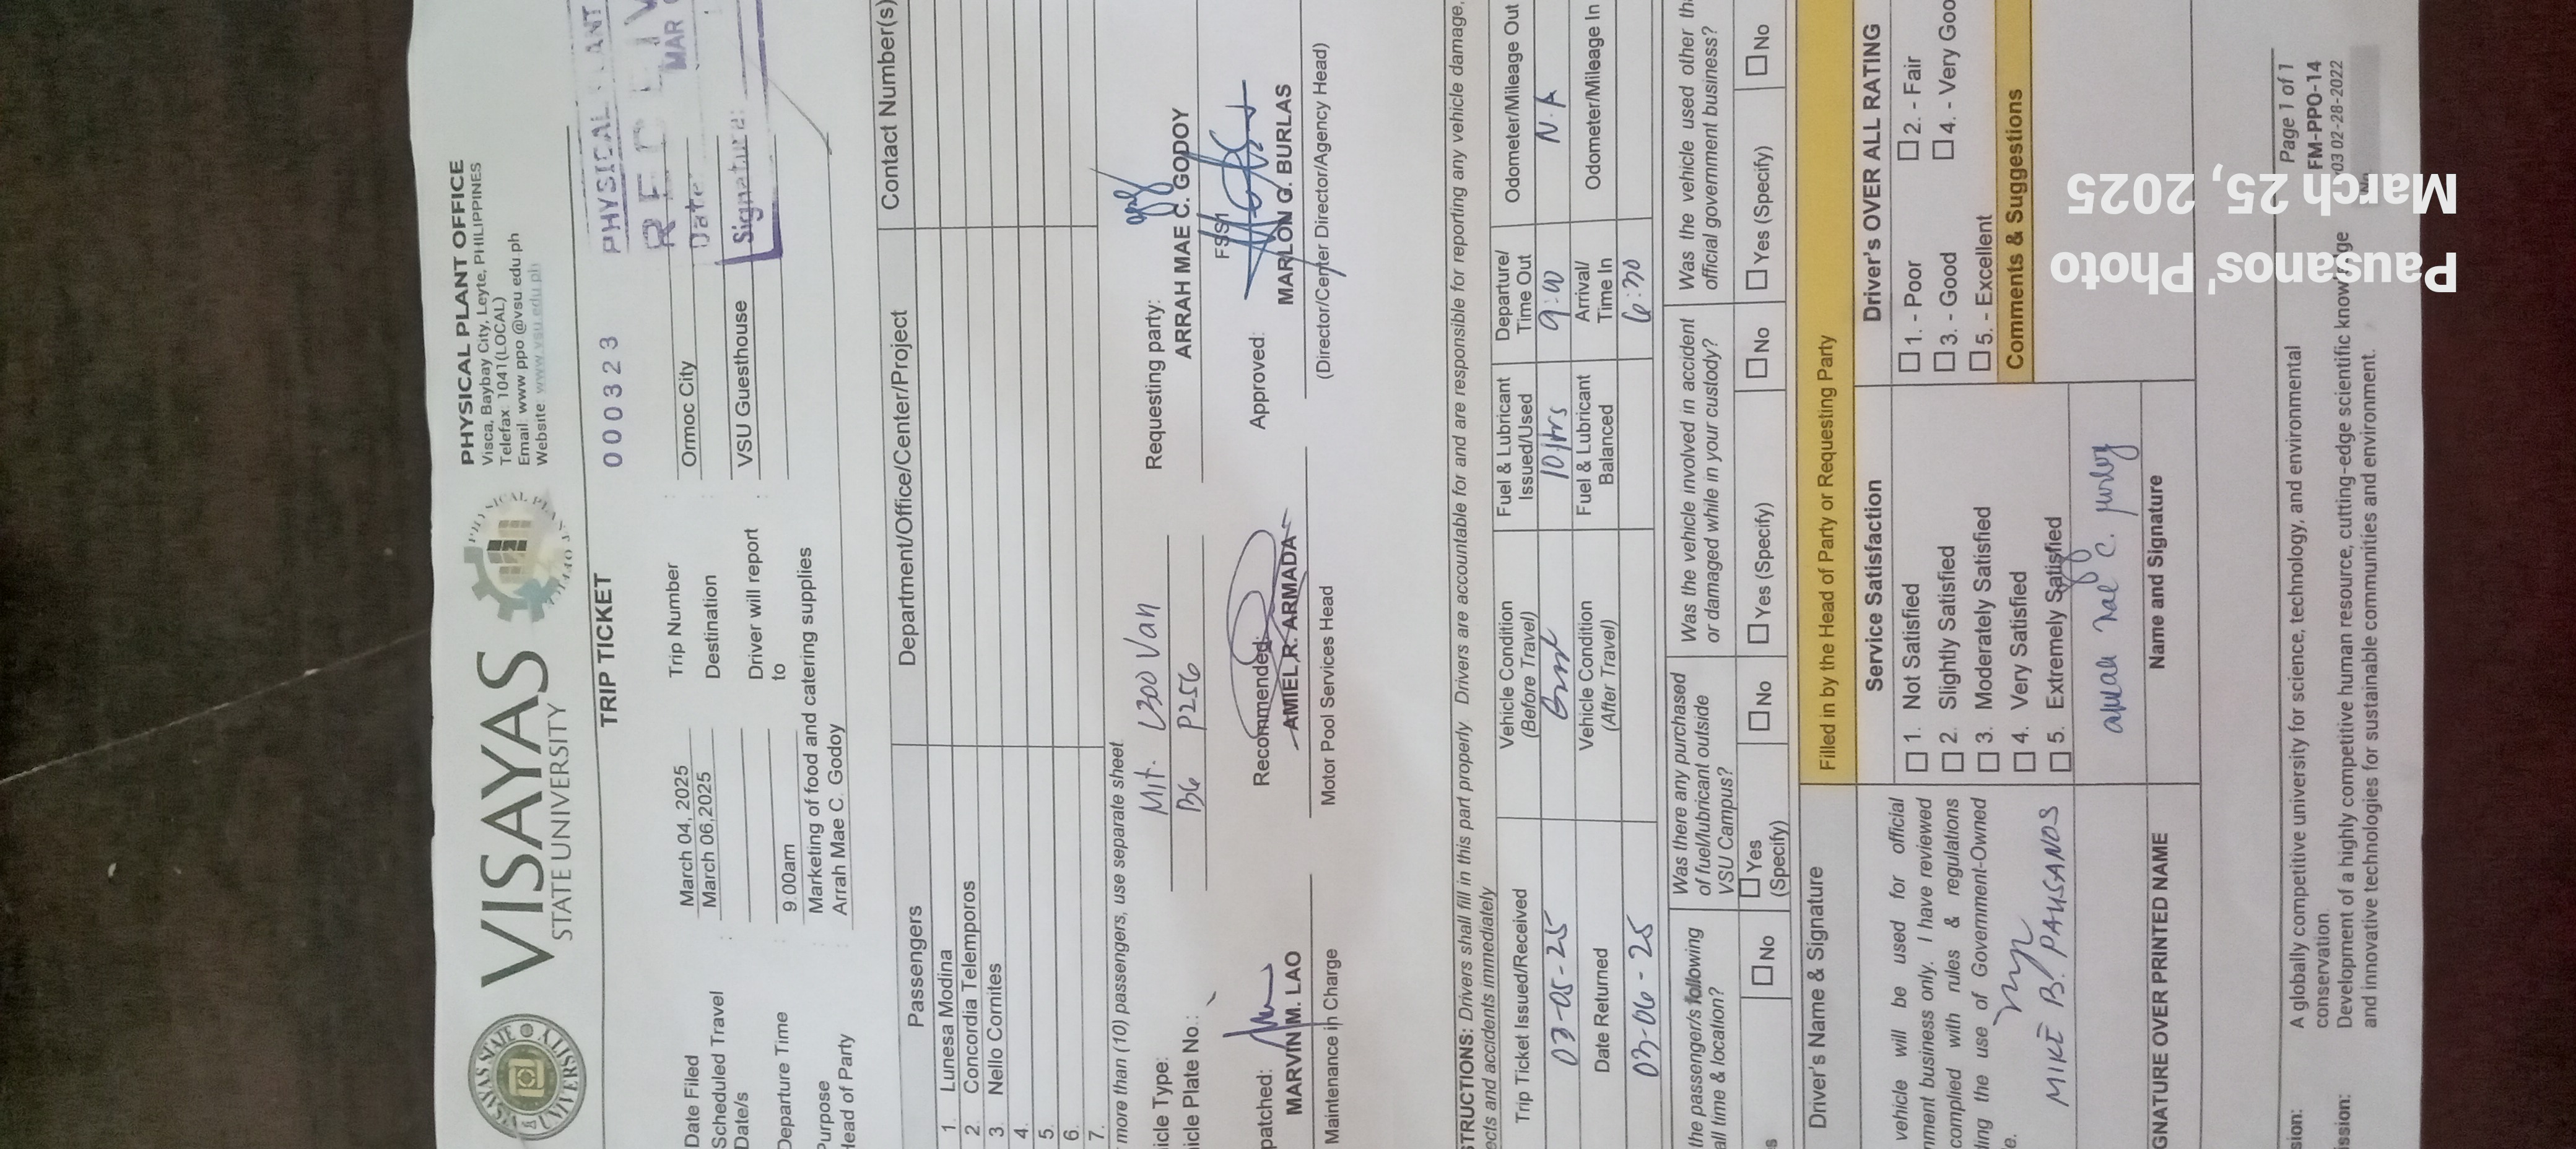 VISAYAS STATE UNIVERSITY
VISAYAS
STATE UNIVERSITY
PHYSICAL PLANT OFFICE
Visca, Baybay City, Leyte, PHILIPPINES
Telefax. 1041(LOCAL)
Email: www ppo @vsu edu ph
Website: www.vsu.edu.ph
TRIP TICKET
000323
PHYSICAL
MAR
Date
Signature:
Date Filed
March 04, 2025
Trip Number
Scheduled Travel
Date/s
March 06,2025
Destination : Ormoc City
Driver will report to : VSU Guesthouse
Departure Time : 9:00am
Purpose : Marketing of food and catering supplies
Head of Party : Arrah Mae C. Godoy
Passengers Department/Office/Center/Project Contact Number(s)
1. Lunesa Modina
2. Concordia Telemporos
3. Nello Cornites
4.
5.
6.
7.
more than (10) passengers, use separate sheet
icle Type: Mit. L300 Van
icle Plate No.: B6 P256
Requesting party:
ARRAH MAE C. GODOY
FSS1
patched:
MARVIN M. LAO
Maintenance in Charge
Recommended:
AMIEL R. ARMADA
Motor Pool Services Head
Approved:
MARLON G. BURLAS
(Director/Center Director/Agency Head)
STRUCTIONS: Drivers shall fill in this part properly Drivers are accountable for and are responsible for reporting any vehicle damage,
ects and accidents immediately
Trip Ticket Issued/Received
Vehicle Condition (Before Travel)
Fuel & Lubricant Issued/Used
Departure/ Time Out
Odometer/Mileage Out
03-05-25 Good 10 ltrs 9:00 N.A
Date Returned
Vehicle Condition (After Travel)
Fuel & Lubricant Balanced
Arrival/ Time In
Odometer/Mileage In
03-06-25 6:30
the passenger/s following
all time & location?
No
Was there any purchased of fuel/lubricant outside VSU Campus?
Yes (Specify)
No
Was the vehicle involved in accident or damaged while in your custody?
Yes (Specify)
No
Was the vehicle used other
official government business?
Yes (Specify)
No
Driver's Name & Signature
Filled in by the Head of Party or Requesting Party
vehicle will be used for official
nment business only. I have reviewed
complied with rules & regulations
ding the use of Government-Owned
MIKE B. PAUSANOS
GNATURE OVER PRINTED NAME
Service Satisfaction
1. Not Satisfied
2. Slightly Satisfied
3. Moderately Satisfied
4. Very Satisfied
5. Extremely Satisfied
Name and Signature
Driver's OVER ALL RATING
1. - Poor 2. - Fair
3. - Good 4. - Very Goo
5. - Excellent
Comments & Suggestions
sion: A globally competitive university for science, technology, and environmental
conservation.
ission: Development of a highly competitive human resource, cutting-edge scientific
and innovative technologies for sustainable communities and environment.
Page 1 of 1
FM-PPO-14
03 02-28-2022
Pausanos' Photo
March 25, 2025